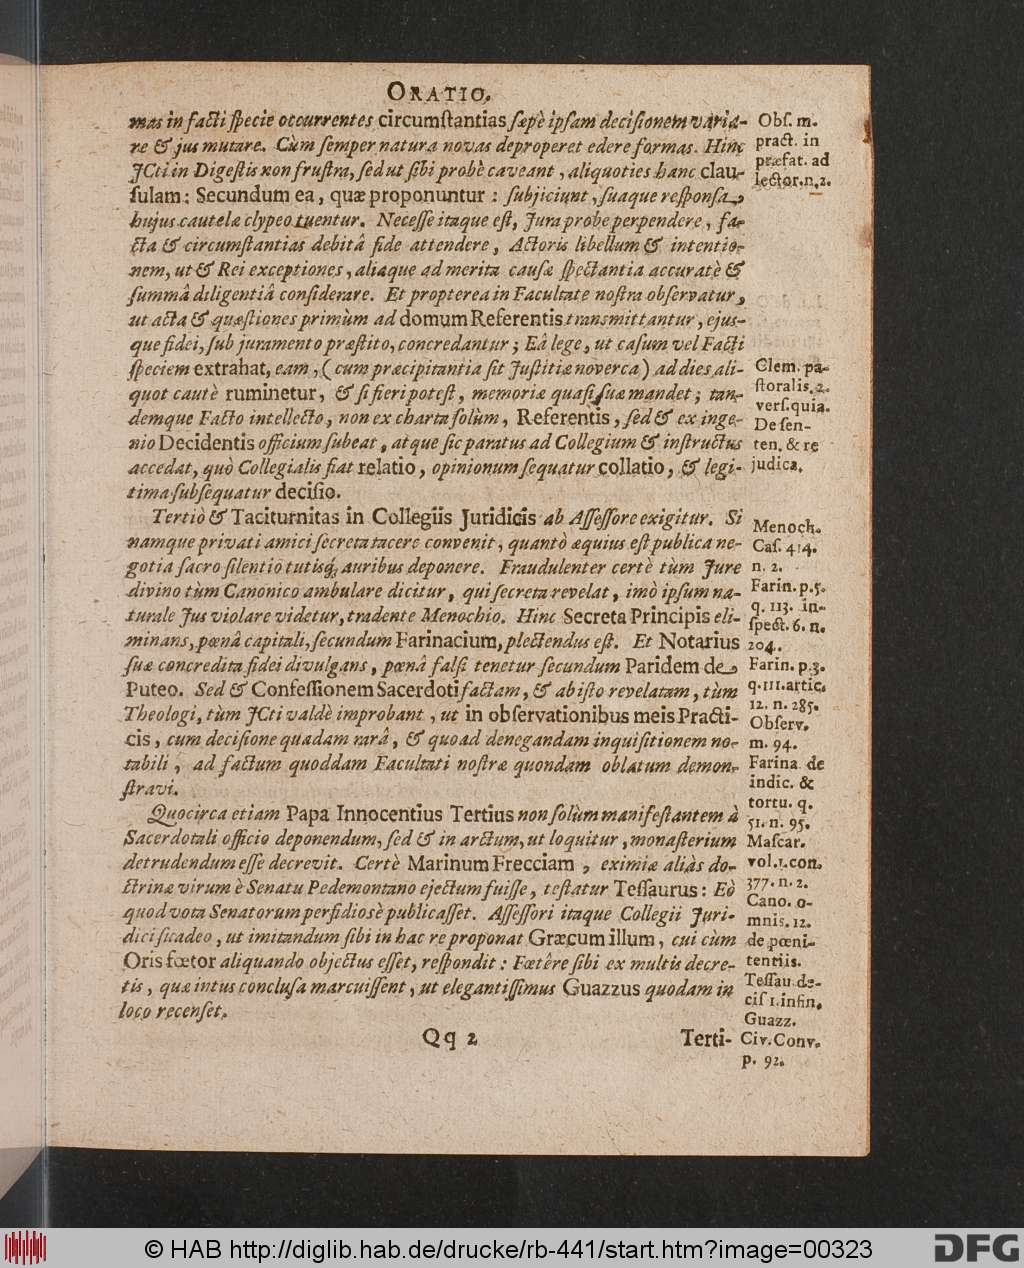 ORATIO.
mas in facti specie occurrentes circumstantias sæpè ipsam decisionem varia-
re & jus mutare. Cùm semper natura novas deproperet edere formas. Hinc
JCti in Digestis non frustra, sed ut sibi probè caveant, aliquoties hanc clau-
sulam: Secundum ea, quæ proponuntur: subjiciunt, suaque responsa
hujus cautelæ clypeo tuentur. Necesse itaque est, Jura probe perpendere, fa-
cta & circumstantias debitâ fide attendere, Actoris libellum & intentio-
nem, ut & Rei exceptiones, aliaque ad merita causæ spectantia accuratè &
summâ diligentiâ considerare. Et propterea in Facultate nostra observatur,
ut acta & quæstiones primùm ad domum Referentis transmittantur, ejus-
que fidei, sub juramento præstito, concredantur; Eâ lege, ut casum vel Facti
speciem extrahat, eam, (cum præcipitantia sit Justitiæ noverca) ad dies ali-
quot cautè ruminetur, & si fieri potest, memoriæ quasi suæ mandet; tan-
demque Facto intellecto, non ex charta solùm, Referentis, sed & ex inge-
nio Decidentis officium subeat, atque sic paratus ad Collegium & instructus
accedat, quò Collegialis fiat relatio, opinionum sequatur collatio, & legi-
tima subsequatur decisio.
Tertiò & Taciturnitas in Collegiis Juridicis ab Assessore exigitur. Si
namque privati amici secreta tacere convenit, quantò æquius est publica ne-
gotia sacro silentio tutisq; auribus deponere. Fraudulenter certè tùm Jure
divino tùm Canonico ambulare dicitur, qui secreta revelat, imò ipsum na-
turale Jus violare videtur, tradente Menochio. Hinc Secreta Principis eli-
minans, pœnâ capitali, secundum Farinacium, plectendus est. Et Notarius
suæ concredita fidei divulgans, pœnâ falsi tenetur secundum Paridem de
Puteo. Sed & Confessionem Sacerdoti factam, & ab isto revelatam, tùm
Theologi, tùm JCti valdè improbant, ut in observationibus meis Practi-
cis, cum decisione quadam rarâ, & quoad denegandam inquisitionem no-
tabili, ad factum quoddam Facultati nostræ quondam oblatum demon-
stravi.
Quocirca etiam Papa Innocentius Tertius non solùm manifestantem à
Sacerdotali officio deponendum, sed & in arctum, ut loquitur, monasterium
detrudendum esse decrevit. Certè Marinum Frecciam, eximiæ aliàs do-
ctrinæ virum è Senatu Pedemontano ejectum fuisse, testatur Tessaurus: Eò
quod vota Senatorum perfidiosè publicasset. Assessori itaque Collegii Juri-
dici suadeo, ut imitandum sibi in hac re proponat Græcum illum, cui cùm
Oris fœtor aliquando objectus esset, respondit: Fœtêre sibi ex multis decre-
tis, quæ intus conclusa marcuissent, ut elegantissimus Guazzus quodam in
loco recenset.
Qq 2
Terti-
Obs. m.
pract. in
præfat. ad
lector. n. 2.
Clem. pa-
storalis. 2.
vers. quia.
De sen-
ten. & re
judica.
Menoch.
Cas. 414.
n. 2.
Farin. p. 5.
q. 113. in-
spect. 6. n.
204.
Farin. p. 3.
q. 111. artic.
12. n. 285.
Observ.
m. 94.
Farina de
indic. &
tortu. q.
51. n. 95.
Mascar.
vol. 1. con.
377. n. 2.
Cano. o-
mnis. 12.
de pœni-
tentiis.
Tessau. de-
cis 1. in fin.
Guazz.
Civ. Conv.
p. 92.
© HAB http://diglib.hab.de/drucke/rb-441/start.htm?image=00323
DFG